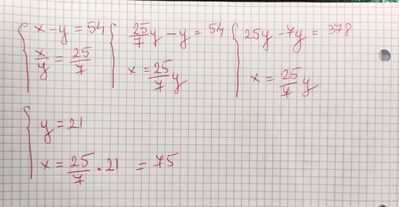 { x - y = 54
x/y = 25/7
{ 25/7 y - y = 54
x = 25/7 y
{ 25y - 7y = 378
x = 25/7 y
{ y = 21
x = 25/7 · 21 = 75